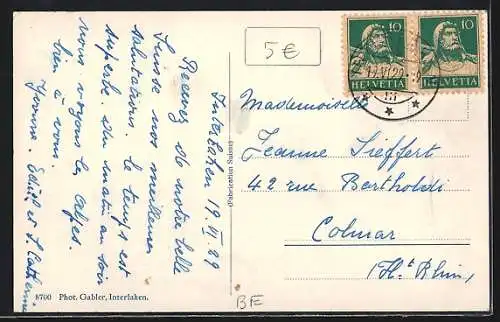 Interlaken 19.VI.29
Recevez de notre belle
Suisse nos meilleures
salutations. le temps est
superbe. du matin au soir
nous voyons les alpes.
bien à vous
Yvonne. et L. Catherine
5€
10 10
HELVETIA HELVETIA
Mademoiselle
Jeanne Sieffert
42 rue Bartholdi
Colmar
(Ht Rhin)
(Fabrication Suisse)
8700 Phot. Gabler, Interlaken.
BE